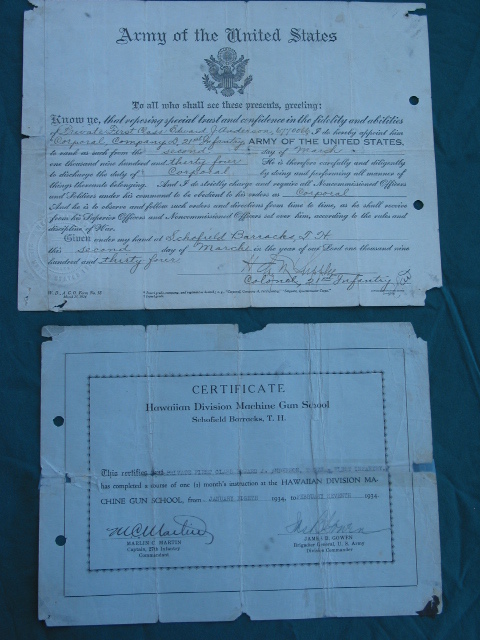 Army of the United States
To all who shall see these presents, greeting:
Know ye, that reposing special trust and confidence in the fidelity and abilities
of Private First Class Edward J. Anderson, I do hereby appoint him
Corporal, Company D, 21st Infantry, ARMY OF THE UNITED STATES,
to rank as such from the second day of March
one thousand nine hundred and thirty four He is therefore carefully and diligently
to discharge the duty of Corporal by doing and performing all manner of
things thereunto belonging. And I do strictly charge and require all Noncommissioned Officers
and Soldiers under his command to be obedient to his orders as Corporal
And he is to observe and follow such orders and directions from time to time, as he shall receive
from his Superior Officers and Noncommissioned Officers set over him, according to the rules and
discipline of War.
Given under my hand at Schofield Barracks, T. H.
this second day of March in the year of our Lord one thousand nine
hundred and thirty four
Colonel, 21st Infantry
CERTIFICATE
Hawaiian Division Machine Gun School
Schofield Barracks, T. H.
This certifies that PRIVATE FIRST CLASS
has completed a course of one (1) month's instruction at the HAWAIIAN DIVISION MA-
CHINE GUN SCHOOL, from JANUARY 1934, to 1934.
MARTIN
Captain, 27th Infantry
Commandant
JAMES B. GOWEN
Brigadier General, U. S. Army
Division Commander